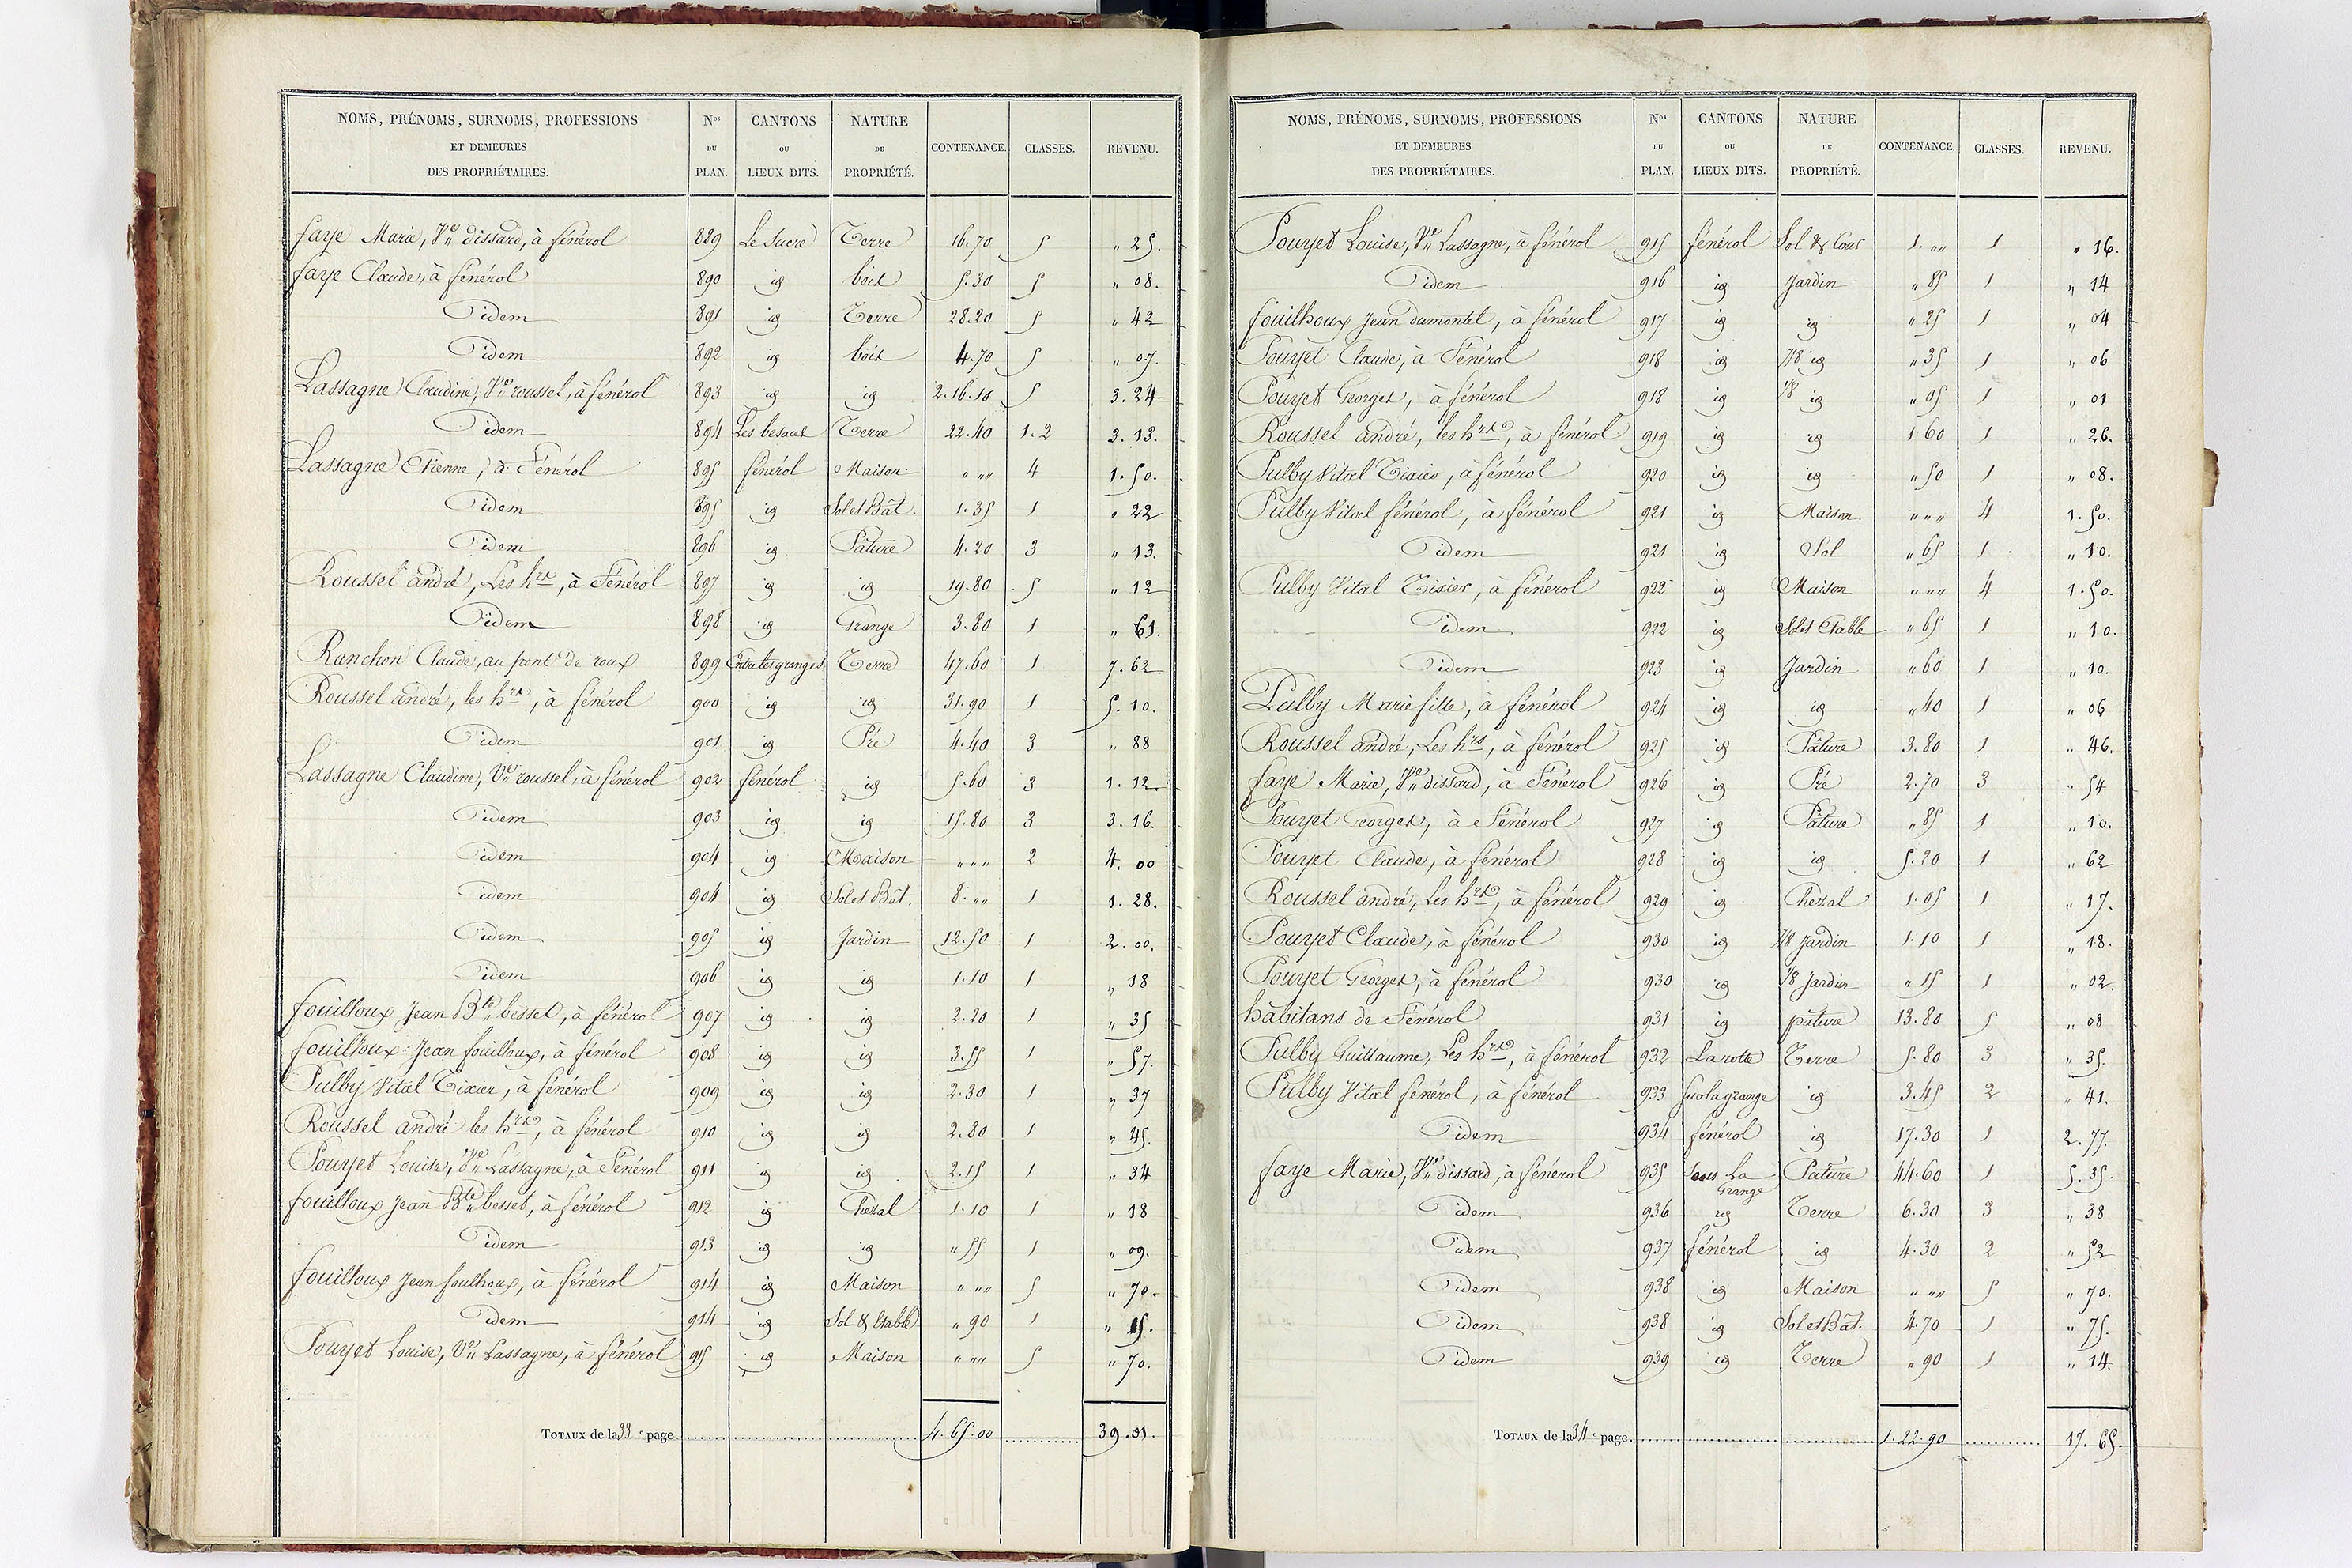 NOMS, PRÉNOMS, SURNOMS, PROFESSIONS ET DEMEURES DES PROPRIÉTAIRES. Nos DU PLAN. CANTONS OU LIEUX DITS. NATURE DE PROPRIÉTÉ. CONTENANCE. CLASSES. REVENU.
faye Marie, Ve dissard, à fénérol 889 Le Sucre Terre 16.70 5 " 25.
faye Claude, à fénérol 890 id bois 5.30 5 " 08.
idem 891 id Terre 28.20 5 " 42
idem 892 id bois 4.70 5 " 07.
Lassagne Claudine, Ve roussel, à fénérol 893 id id 2.16.10 5 3.24
idem 894 Les besaces Terre 22.40 1.2 3.13.
Lassagne Etienne, à Fénérol 895 fénérol Maison " "" 4 1.50.
idem 895 id Sol et Bât. 1.35 1 " 22
idem 896 id Pâture 4.20 3 " 13.
Roussel andré, Les hrs, à Fénérol 897 id id 19.80 5 " 12
idem 898 id Grange 3.80 1 " 61.
Ranchon Claude, au pont de roux 899 Entre les granges Terre 47.60 1 7.62
Roussel andré, les hrs, à fénérol 900 id id 31.90 1 5.10.
idem 901 id Pré 4.40 3 " 88
Lassagne Claudine, Ve roussel, à fénérol 902 fénérol id 5.60 3 1.12.
idem 903 id id 15.80 3 3.16.
idem 904 id Maison " "" 2 4.00
idem 904 id Sol et Bât. 8."" 1 1.28.
idem 905 id Jardin 12.50 1 2.00.
idem 906 id id 1.10 1 " 18
fouilloux Jean Bte besset, à fénérol 907 id id 2.20 1 " 35
fouilloux Jean fouilloux, à fénérol 908 id id 3.55 1 " 57.
Pulby Vital Tixier, à fénérol 909 id id 2.30 1 " 37
Roussel andré les hrs, à fénérol 910 id id 2.80 1 " 45.
Pouyet Louise, Ve Lassagne, à Fénérol 911 id id 2.15 1 " 34
fouilloux Jean Bte besset, à fénérol 912 id Chezal 1.10 1 " 18
idem 913 id id " 55 1 " 09.
fouilloux Jean foulhoux, à fénérol 914 id Maison " "" 5 " 70.
idem 914 id Sol & Etable " 90 1 " 15.
Pouyet Louise, Ve Lassagne, à fénérol 915 id Maison " "" 5 " 70.
TOTAUX de la 33e page 4.65.00 39.01.
NOMS, PRÉNOMS, SURNOMS, PROFESSIONS ET DEMEURES DES PROPRIÉTAIRES. Nos DU PLAN. CANTONS OU LIEUX DITS. NATURE DE PROPRIÉTÉ. CONTENANCE. CLASSES. REVENU.
Pouyet Louise, Ve Lassagne, à fénérol 915 fénérol Sol & Cour 1."" 1 " 16.
idem 916 id Jardin " 85 1 " 14
fouilhoux Jean dumontel, à fénérol 917 id id " 25 1 " 04
Pouyet Claude, à Fénérol 918 id 7/8 id " 35 1 " 06
Pouyet Georges, à fénérol 918 id 1/8 id " 05 1 " 01
Roussel andré, les hrs, à fénérol 919 id id 1.60 1 " 26.
Pulby Vital Tixier, à fénérol 920 id id " 50 1 " 08.
Pulby Vital fénérol, à fénérol 921 id Maison " "" 4 1.50.
idem 921 id Sol " 65 1 " 10.
Pulby Vital Tixier, à fénérol 922 id Maison " "" 4 1.50.
idem 922 id Sol et Etable " 65 1 " 10.
idem 923 id Jardin " 60 1 " 10.
Pulby Marie fille, à fénérol 924 id id " 40 1 " 06
Roussel andré, Les hrs, à fénérol 925 id Pâture 3.80 1 " 46.
faye Marie, Ve dissard, à Fénérol 926 id Pré 2.70 3 " 54
Pouyet Georges, à Fénérol 927 id Pâture " 85 1 " 10.
Pouyet Claude, à fénérol 928 id id 5.20 1 " 62
Roussel andré, Les hrs, à fénérol 929 id Chezal 1.05 1 " 17.
Pouyet Claude, à fénérol 930 id 7/8 Jardin 1.10 1 " 18.
Pouyet Georges, à fénérol 930 id 1/8 Jardin " 15 1 " 02.
habitans de Fénérol 931 id pâture 13.80 5 " 08
Pulby Guillaume, Les hrs, à fénérol 932 La rotte Terre 5.80 3 " 35.
Pulby Vital fénérol, à fénérol 933 id 3.45 2 " 41.
idem 934 fénérol id 17.30 1 2.77.
faye Marie, Ve dissard, à fénérol 935 sous La Grange Pature 44.60 1 5.35.
idem 936 id Terre 6.30 3 " 38
idem 937 fénérol id 4.30 2 " 52
idem 938 id Maison " "" 5 " 70.
idem 938 id Sol et Bât. 4.70 1 " 75.
idem 939 id Terre " 90 1 " 14.
TOTAUX de la 34e page 1.22.90 17.65.